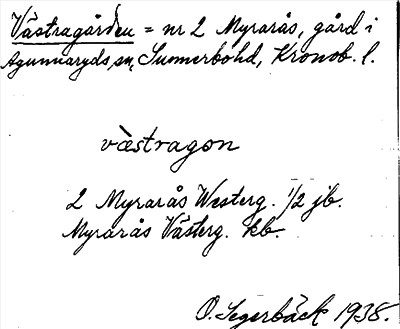 Västragården = nr 2 Myrarås, gård i
Agunnaryds sn, Sunnerbo hd, Kronob. l.
västragon
2 Myrarås Westerg. 1/2 jb.
Myrarås Västerg. kb.
O. Segerbäck 1938.